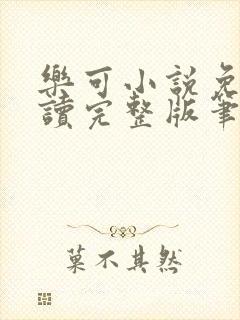 樂可小說免
讀完整版筆
菓不其然